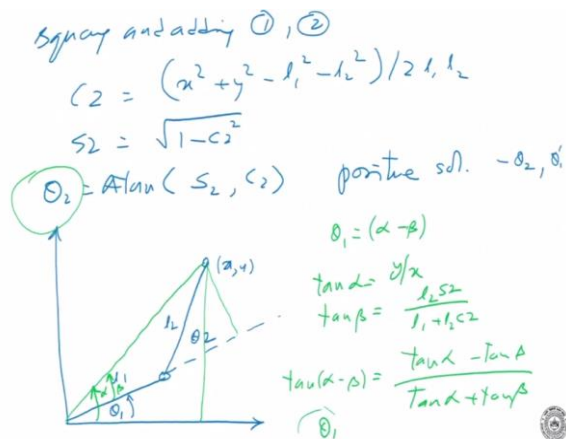 Squaring and adding ①, ②
C2 = (x² + y² - l₁² - l₂²) / 2 l₁ l₂
S2 = √(1 - C2²)
θ₂ = Atan ( S₂, C₂ ) positive sol. -θ₂, θ₁'
θ₁ = (α - β)
tan α = y/x
tan β = l₂ S2 / l₁ + l₂ C2
tan(α - β) = tan α - Tan β / Tan α + tan β
θ₁
(x, y)
l₂
θ2
l₁
α
β
θ₁